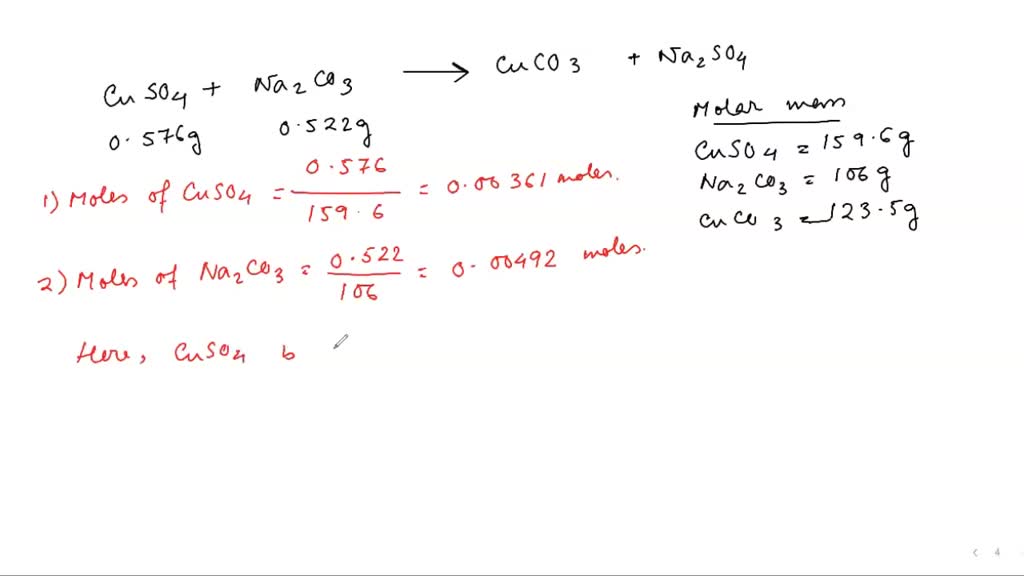 CuSO4 + Na2CO3 → CuCO3 + Na2SO4
0.576g 0.522g
Molar mass
CuSO4 = 159.6g
Na2CO3 = 106g
CuCO3 = 123.5g
1) Moles of CuSO4 = 0.576 / 159.6 = 0.00361 moles.
2) Moles of Na2CO3 = 0.522 / 106 = 0.00492 moles.
Here, CuSO4
4